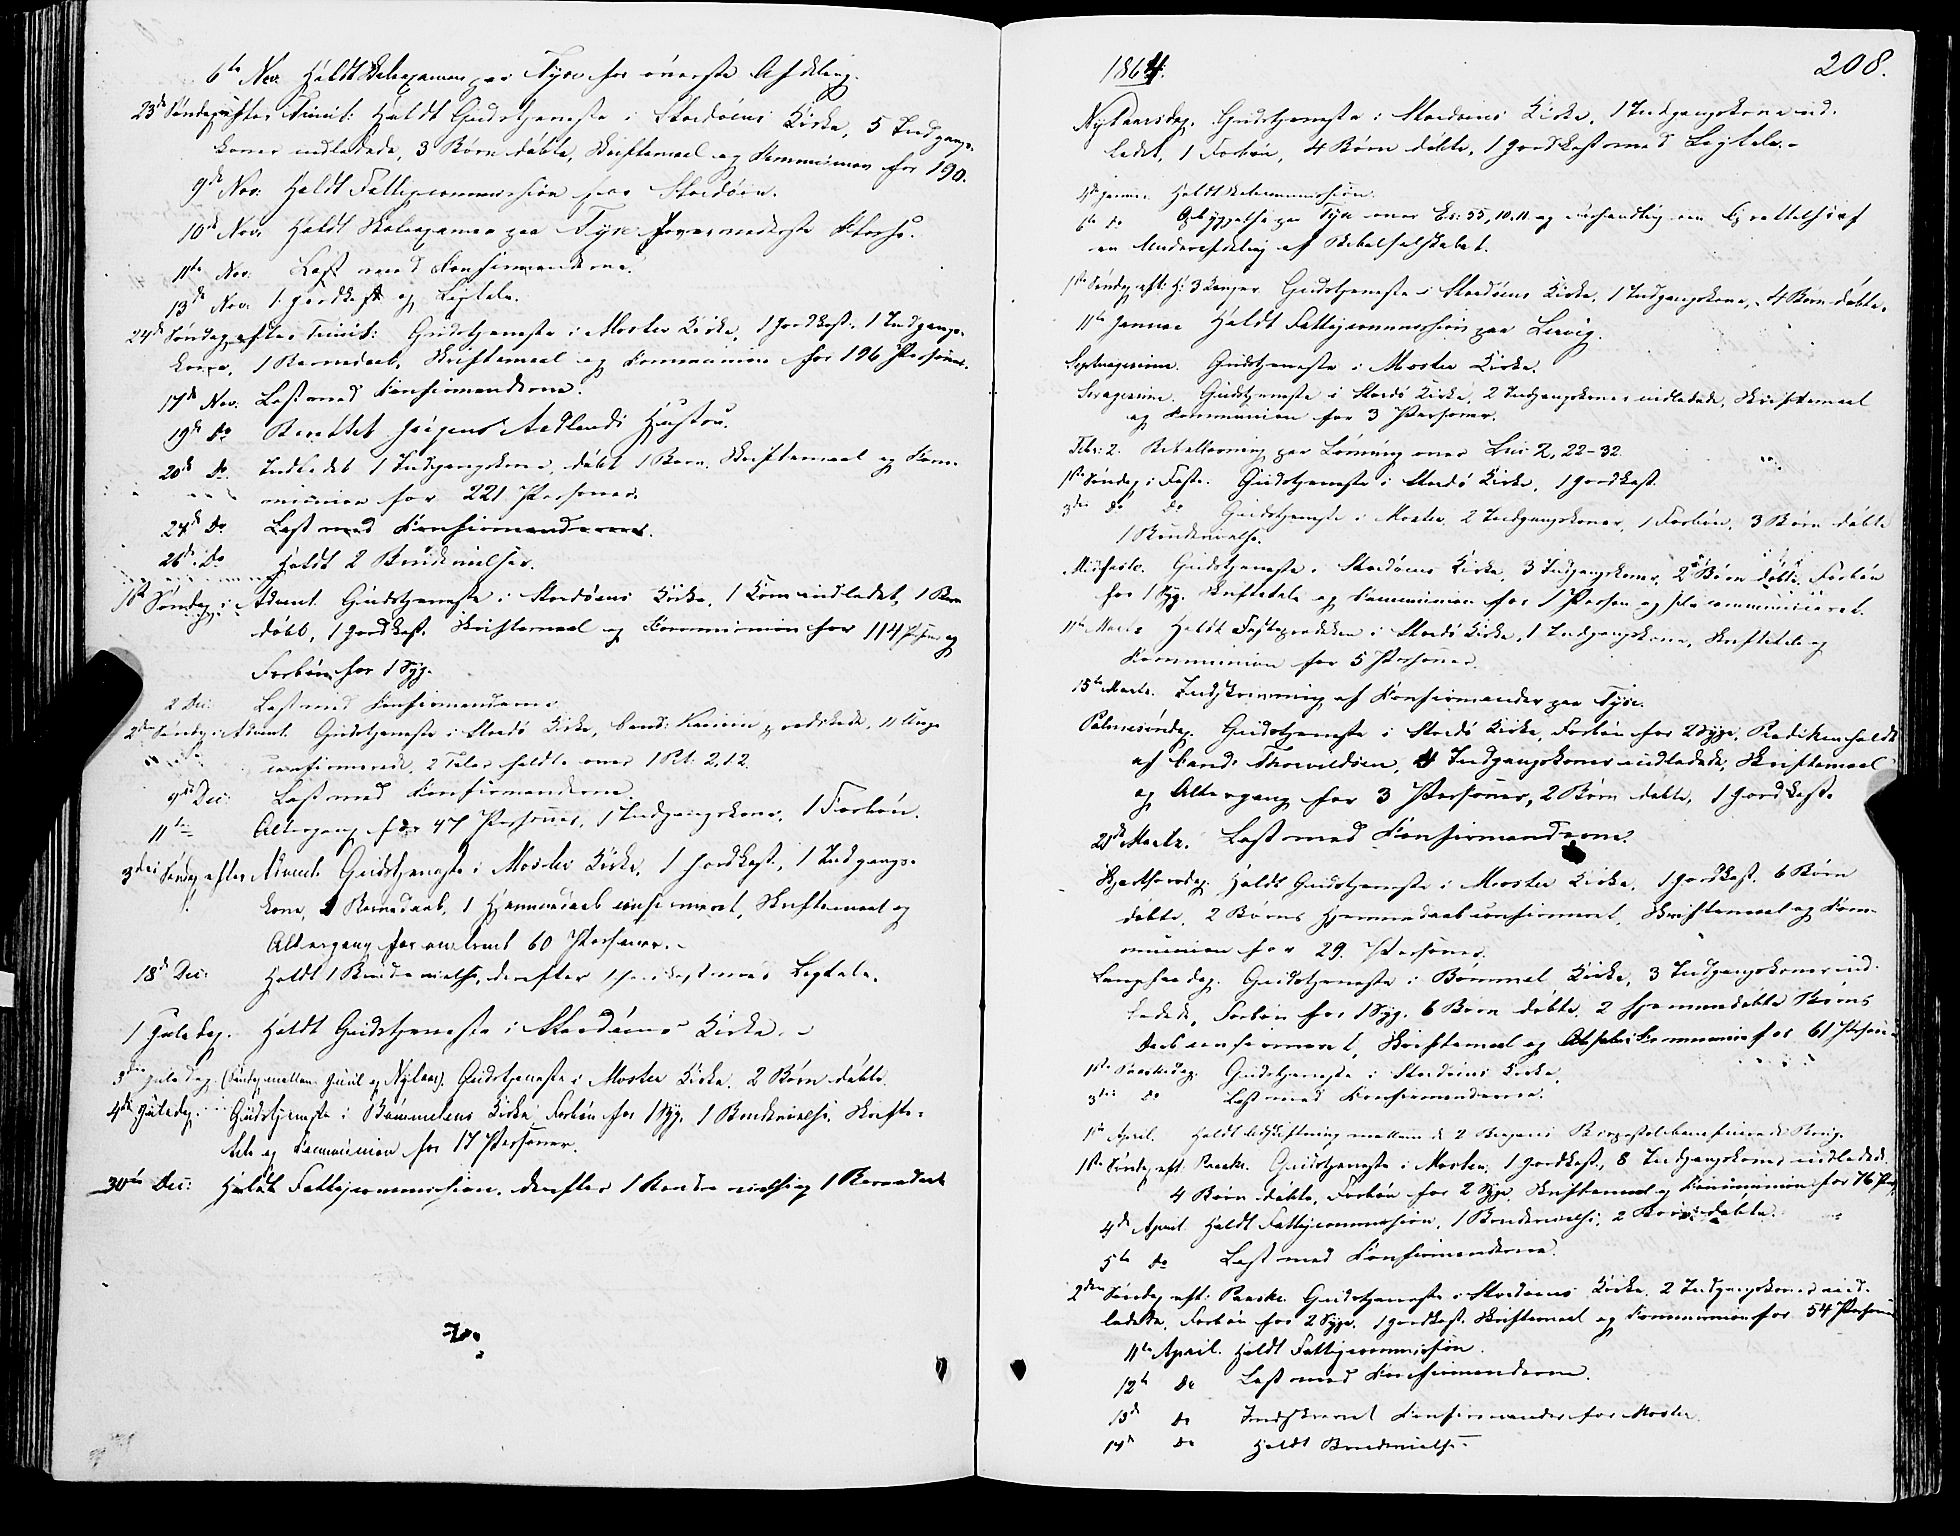 6te Nov. Holdt Skoleexamen paa Tyse for øverste Afdeling.
23de Søndag efter Trinit: Holdt Gudstjeneste i Stordøens Kirke, 5 Indgangs-
koner indledede, 3 Børn døbte, Skriftemaal og Kommunion for 190.
9de Nov. Holdt Fattigcommission paa Stordøen.
10de Nov. Holdt Skoleexamen paa Tyse
11te Nov. Læst med Konfirmanderne.
13de Nov. 1 Jordkast og Ligtale.
24de Søndag efter Trinit: Gudstjeneste i Moster Kirke, 1 Jordkast, 1 Indgangs-
kone, 1 Barnedaab, Skriftemaal og Kommunion for 196 Personer.
17de Nov. Læst med Konfirmanderne.
19de Do Berettet Jørgens Aadlands Hustru.
20de Do. Indledet 1 Indgangskone, døbt 1 Barn, Skriftemaal og Kom-
munion for 221 Personer.
24de Do Læst med Konfirmanderne.
26de Do Holdt 2 Brudevielser.
1ste Søndag i Advent. Gudstjeneste i Stordøens Kirke, 1 Kone indledet, 1 Barn
døbt, 1 Jordkast. Skriftemaal og Kommunion for 114 Pers. og
Forbøn for 1 Syg.
2 Dec: Læst med Konfirmanderne
2den Søndag i Advent. Gudstjeneste i Stordø Kirke, Cand: prædikede, 11 Unge
confirmerede, 2 Taler holdte over 1 Pet. 2, 1.2.
9de Dec: Læst med Konfirmanderne.
11te Altergang for 47 Personer, 1 Indgangskone, 1 Forbøn.
3die Søndag efter Advent. Gudstjeneste i Moster Kirke, 1 Jordkast, 1 Indgangs-
kone, 1 Barnedaab, 1 Hjemmedaab confirmeret, Skriftemaal og
Altergang for omtrent 60 Personer.
18de Dec: Holdt 1 Brudevielse, derefter 1 Jordkast med Ligtale.
1 Juledag. Holdt Gudstjeneste i Stordøens Kirke.
3die Juledag (Søndag mellem Juul og Nytaar). Gudstjeneste i Moster Kirke. 2 Børn døbte
4de Juledag. Gudstjeneste i Bømmelens Kirke Forbøn for 1 Syg. 1 Brudevielse, Skrifte-
tale og Kommunion for 17 Personer.
30te Dec: Holdt Fattigcommission, derefter 1 Brudevielse og 1 Barnedaab
208.
1864.
Nytaarsdag. Gudstjeneste i Stordøens Kirke, 1 Indgangskone ind-
ledet, 1 Forbøn, 4 Børn døbte, 1 Jordkast med Ligtale.
4de Januar. Holdt Skolecommission.
6te do Opbyggelse paa Tyse over Es: 55, 10.11 og Forhandling om Oprettelse af
en Underafdeling af Bibelselskabet.
1ste Søndag eft: H: 3 Konger. Gudstjeneste i Stordøens Kirke, 1 Indgangskone, 4 Børn døbte.
11te Januar Holdt Fattigcommission paa Lervig.
Septuagesima. Gudstjeneste i Moster Kirke.
Sexagesima. Gudstjeneste i Stordø Kirke, 2 Indgangskoner indledede, Skriftemaal
og Kommunion for 3 Personer.
Febr: 2. Bibellæsning paa Lønning over Luc 2, 22-32
1ste Søndag i Faste. Gudstjeneste i Stordø Kirke, 1 Jordkast.
3die Do Do Gudstjeneste i Moster. 2 Indgangskoner, 1 Forbøn, 3 Børn døbte
1 Brudevielse.
Midfaste. Gudstjeneste i Stordøens Kirke, 3 Indgangskoner, 2 Børn døbte, Forbøn
for 1 Syg. Skriftetale og Kommunion for 1 Person og communiceret.
11te Marts Holdt Fasteprædiken i Stordø Kirke, 1 Indgangskone, Skriftetale og
Kommunion for 5 Personer.
15te Marts. Indskrivning af Konfirmander paa Tyse.
Palmesøndag. Gudstjeneste i Stordø Kirke, Forbøn for 2 Syge, Prædiken holdt
af Cand: Thorvaldsen, 4 Indgangskoner indledede, Skriftemaal
og Altergang for 3 Personer, 2 Børn døbte, 1 Jordkast.
Marts. Læst med Konfirmanderne.
Skjærthorsdag. Holdt Gudstjeneste i Moster Kirke, 1 Jordkast, 6 Børn
døbte, 2 Børns Hjemmedaab confirmeret, Skriftemaal og Kom-
munion for 29 Personer.
Langfredag. Gudstjeneste i Bømmel Kirke, 3 Indgangskoner ind-
ledede, Forbøn for 1 Syg. 6 Børn døbte, 2 hjemmedøbte Børns
Daab confirmeret, Skriftemaal og Kommunion for 61 Personer
1ste Paaskedag. Gudstjeneste i Stordøens Kirke.
3die Do Læst med Konfirmanderne.
1ste April. Holdt mellem de 2
1ste Søndag eft. Paaske. Gudstjeneste i Moster, 1 Jordkast, 8 Indgangskoner indledede.
4 Børn døbte, Forbøn for 2 Syge, Skriftemaal og Kommunion for 76 Pers.
4de April Holdt Fattigcommission, 1 Brudevielse, 2 Børn døbte.
5te Do Læst med Konfirmanderne.
2den Søndag eft: Paaske. Gudstjeneste i Stordøens Kirke, 2 Indgangskoner ind-
ledede, Forbøn for 2 Syge, 1 Jordkast, Skriftemaal og Kommunion for 54 Personer
11te April. Holdt Fattigcommission.
12te Do Læst med Konfirmanderne.
13de Do Indskrevet Konfirmander for Moster.
14de Do Holdt Brudevielse.